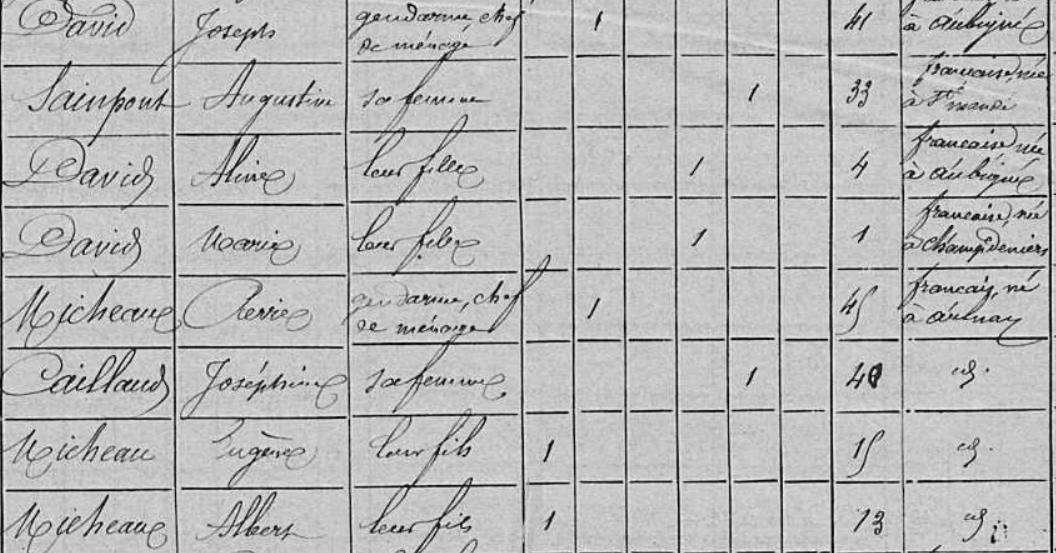 David Joseph gendarme, chef de ménage 1 41 à Aubigné
Sainpont Augustine sa femme 1 33 française, née à St mandé
David Aline leur fille 1 4 française née à Aubigné
David Marie leur fille 1 1 française, née à Champdeniers
Micheau Pierre gendarme, chef de ménage 1 45 français, né à Aulnay
Caillaud Joséphine sa femme 1 40 id.
Micheau Eugène leur fils 1 15 id.
Micheau Albert leur fils 1 13 id.